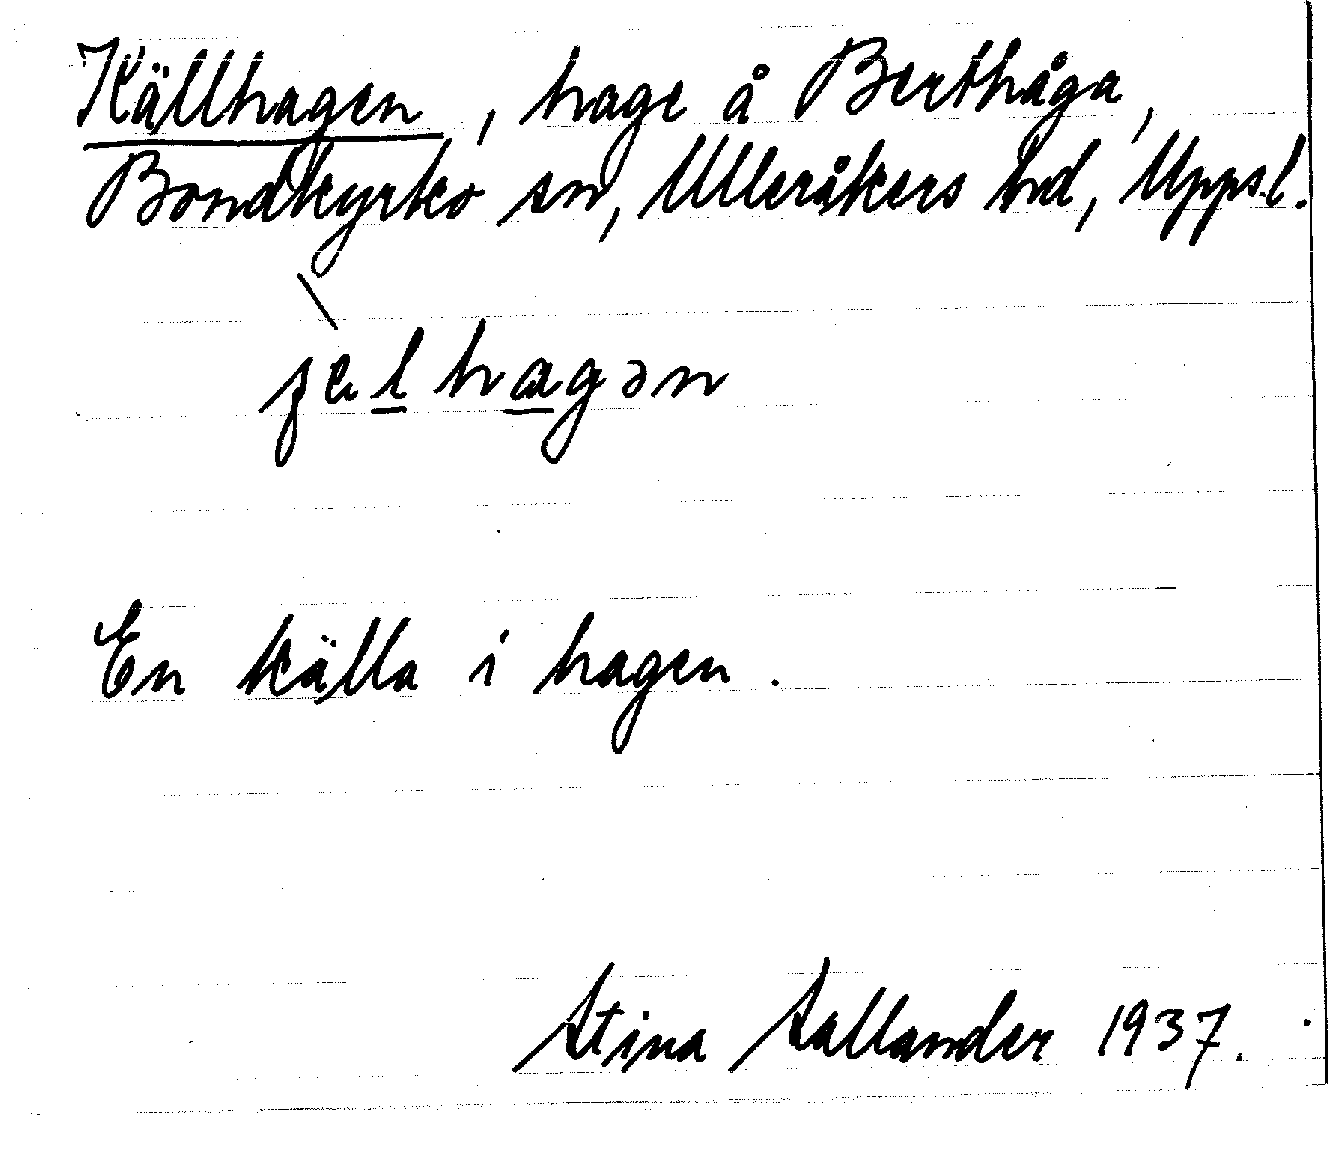 Källhagen, hage å Berthåga,
Bondkyrko sn, Ulleråkers hd, Uppsl.
En källa i hagen.
Stina Sallander 1937.